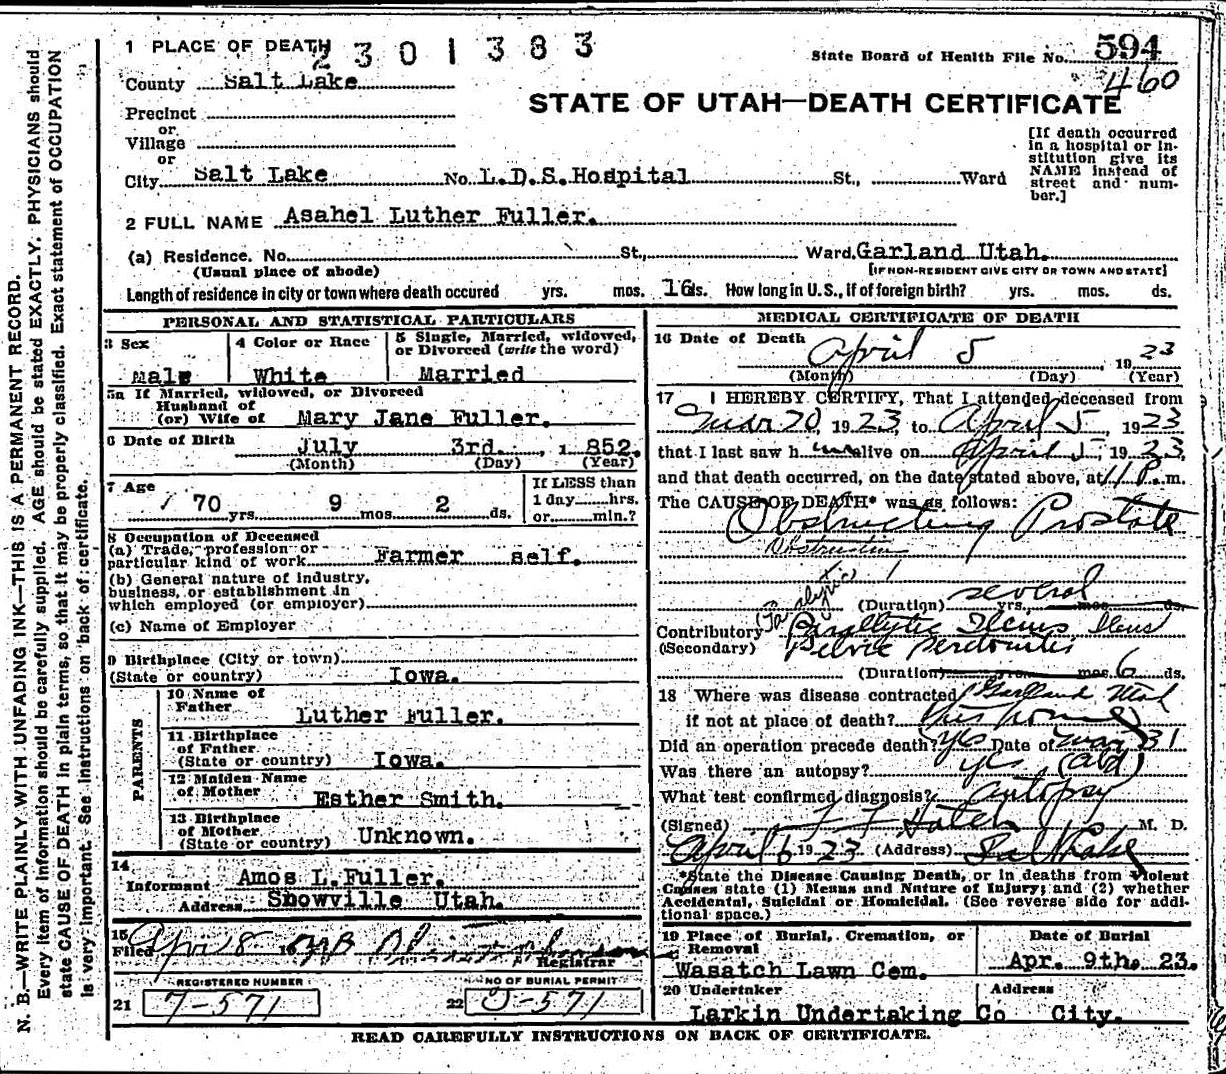 1 PLACE OF DEATH 2301383
State Board of Health File No. 594
460
County Salt Lake
STATE OF UTAH—DEATH CERTIFICATE
Precinct
or
Village
or
City Salt Lake No. L.D.S.Hospital St., Ward
[If death occurred
in a hospital or in-
stitution give its
NAME instead of
street and num-
ber.]
2 FULL NAME Asahel Luther Fuller.
(a) Residence. No. St., Ward. Garland Utah.
(Usual place of abode) [IF NON-RESIDENT GIVE CITY OR TOWN AND STATE]
Length of residence in city or town where death occured yrs. mos. 16 ds. How long in U.S., if of foreign birth? yrs. mos. ds.
PERSONAL AND STATISTICAL PARTICULARS
3 Sex 4 Color or Race 5 Single, Married, widowed,
or Divorced (write the word)
Male White Married
5a If Married, widowed, or Divorced
Husband of
(or) Wife of Mary Jane Fuller.
6 Date of Birth July 3rd. , 1 852.
(Month) (Day) (Year)
7 Age 70 yrs. 9 mos. 2 ds.
If LESS than
1 day hrs.
or min.?
8 Occupation of Deceased
(a) Trade, profession or
particular kind of work Farmer self.
(b) General nature of industry,
business, or establishment in
which employed (or employer)
(c) Name of Employer
9 Birthplace (City or town)
(State or country) Iowa.
PARENTS
10 Name of
Father Luther Fuller.
11 Birthplace
of Father
(State or country) Iowa.
12 Maiden Name
of Mother Esther Smith.
13 Birthplace
of Mother
(State or country) Unknown.
14
Informant Amos L.Fuller.
Address Snowville Utah.
15
Filed Apr 8
Registrar
REGISTERED NUMBER NO OF BURIAL PERMIT
21 7-571 22 J-571
MEDICAL CERTIFICATE OF DEATH
16 Date of Death
April 5 , 1923
(Month) (Day) (Year)
17 I HEREBY CERTIFY, That I attended deceased from
Mar 20, 1923 to April 5, 1923
that I last saw him alive on April 5, 1923,
and that death occurred, on the date stated above, at 11 P. m.
The CAUSE OF DEATH* was as follows:
Obstructing Prostate
Obstruction
(Duration) several yrs. mos. ds.
Contributory Parallytic Ileus Ileus
(Secondary) Pelvic Peritonitis
(Duration) mos. 6 ds.
18 Where was disease contracted Garland Utah
if not at place of death? his home
Did an operation precede death? yes Date of Mar 31
Was there an autopsy? yes
What test confirmed diagnosis? autopsy
(Signed) F F Hatch M. D.
April 6 1923 (Address) Salt Lake
*State the Disease Causing Death, or in deaths from Violent
Causes state (1) Means and Nature of Injury; and (2) whether
Accidental, Suicidal or Homicidal. (See reverse side for addi-
tional space.)
19 Place of Burial, Cremation, or
Removal
Date of Burial
Wasatch Lawn Cem. Apr. 9th. 23.
20 Undertaker Address
Larkin Undertaking Co City.
READ CAREFULLY INSTRUCTIONS ON BACK OF CERTIFICATE.
N. B.—WRITE PLAINLY WITH UNFADING INK—THIS IS A PERMANENT RECORD.
Every item of information should be carefully supplied. AGE should be stated EXACTLY. PHYSICIANS should
state CAUSE OF DEATH in plain terms, so that it may be properly classified. Exact statement of OCCUPATION
is very important. See instructions on back of certificate.